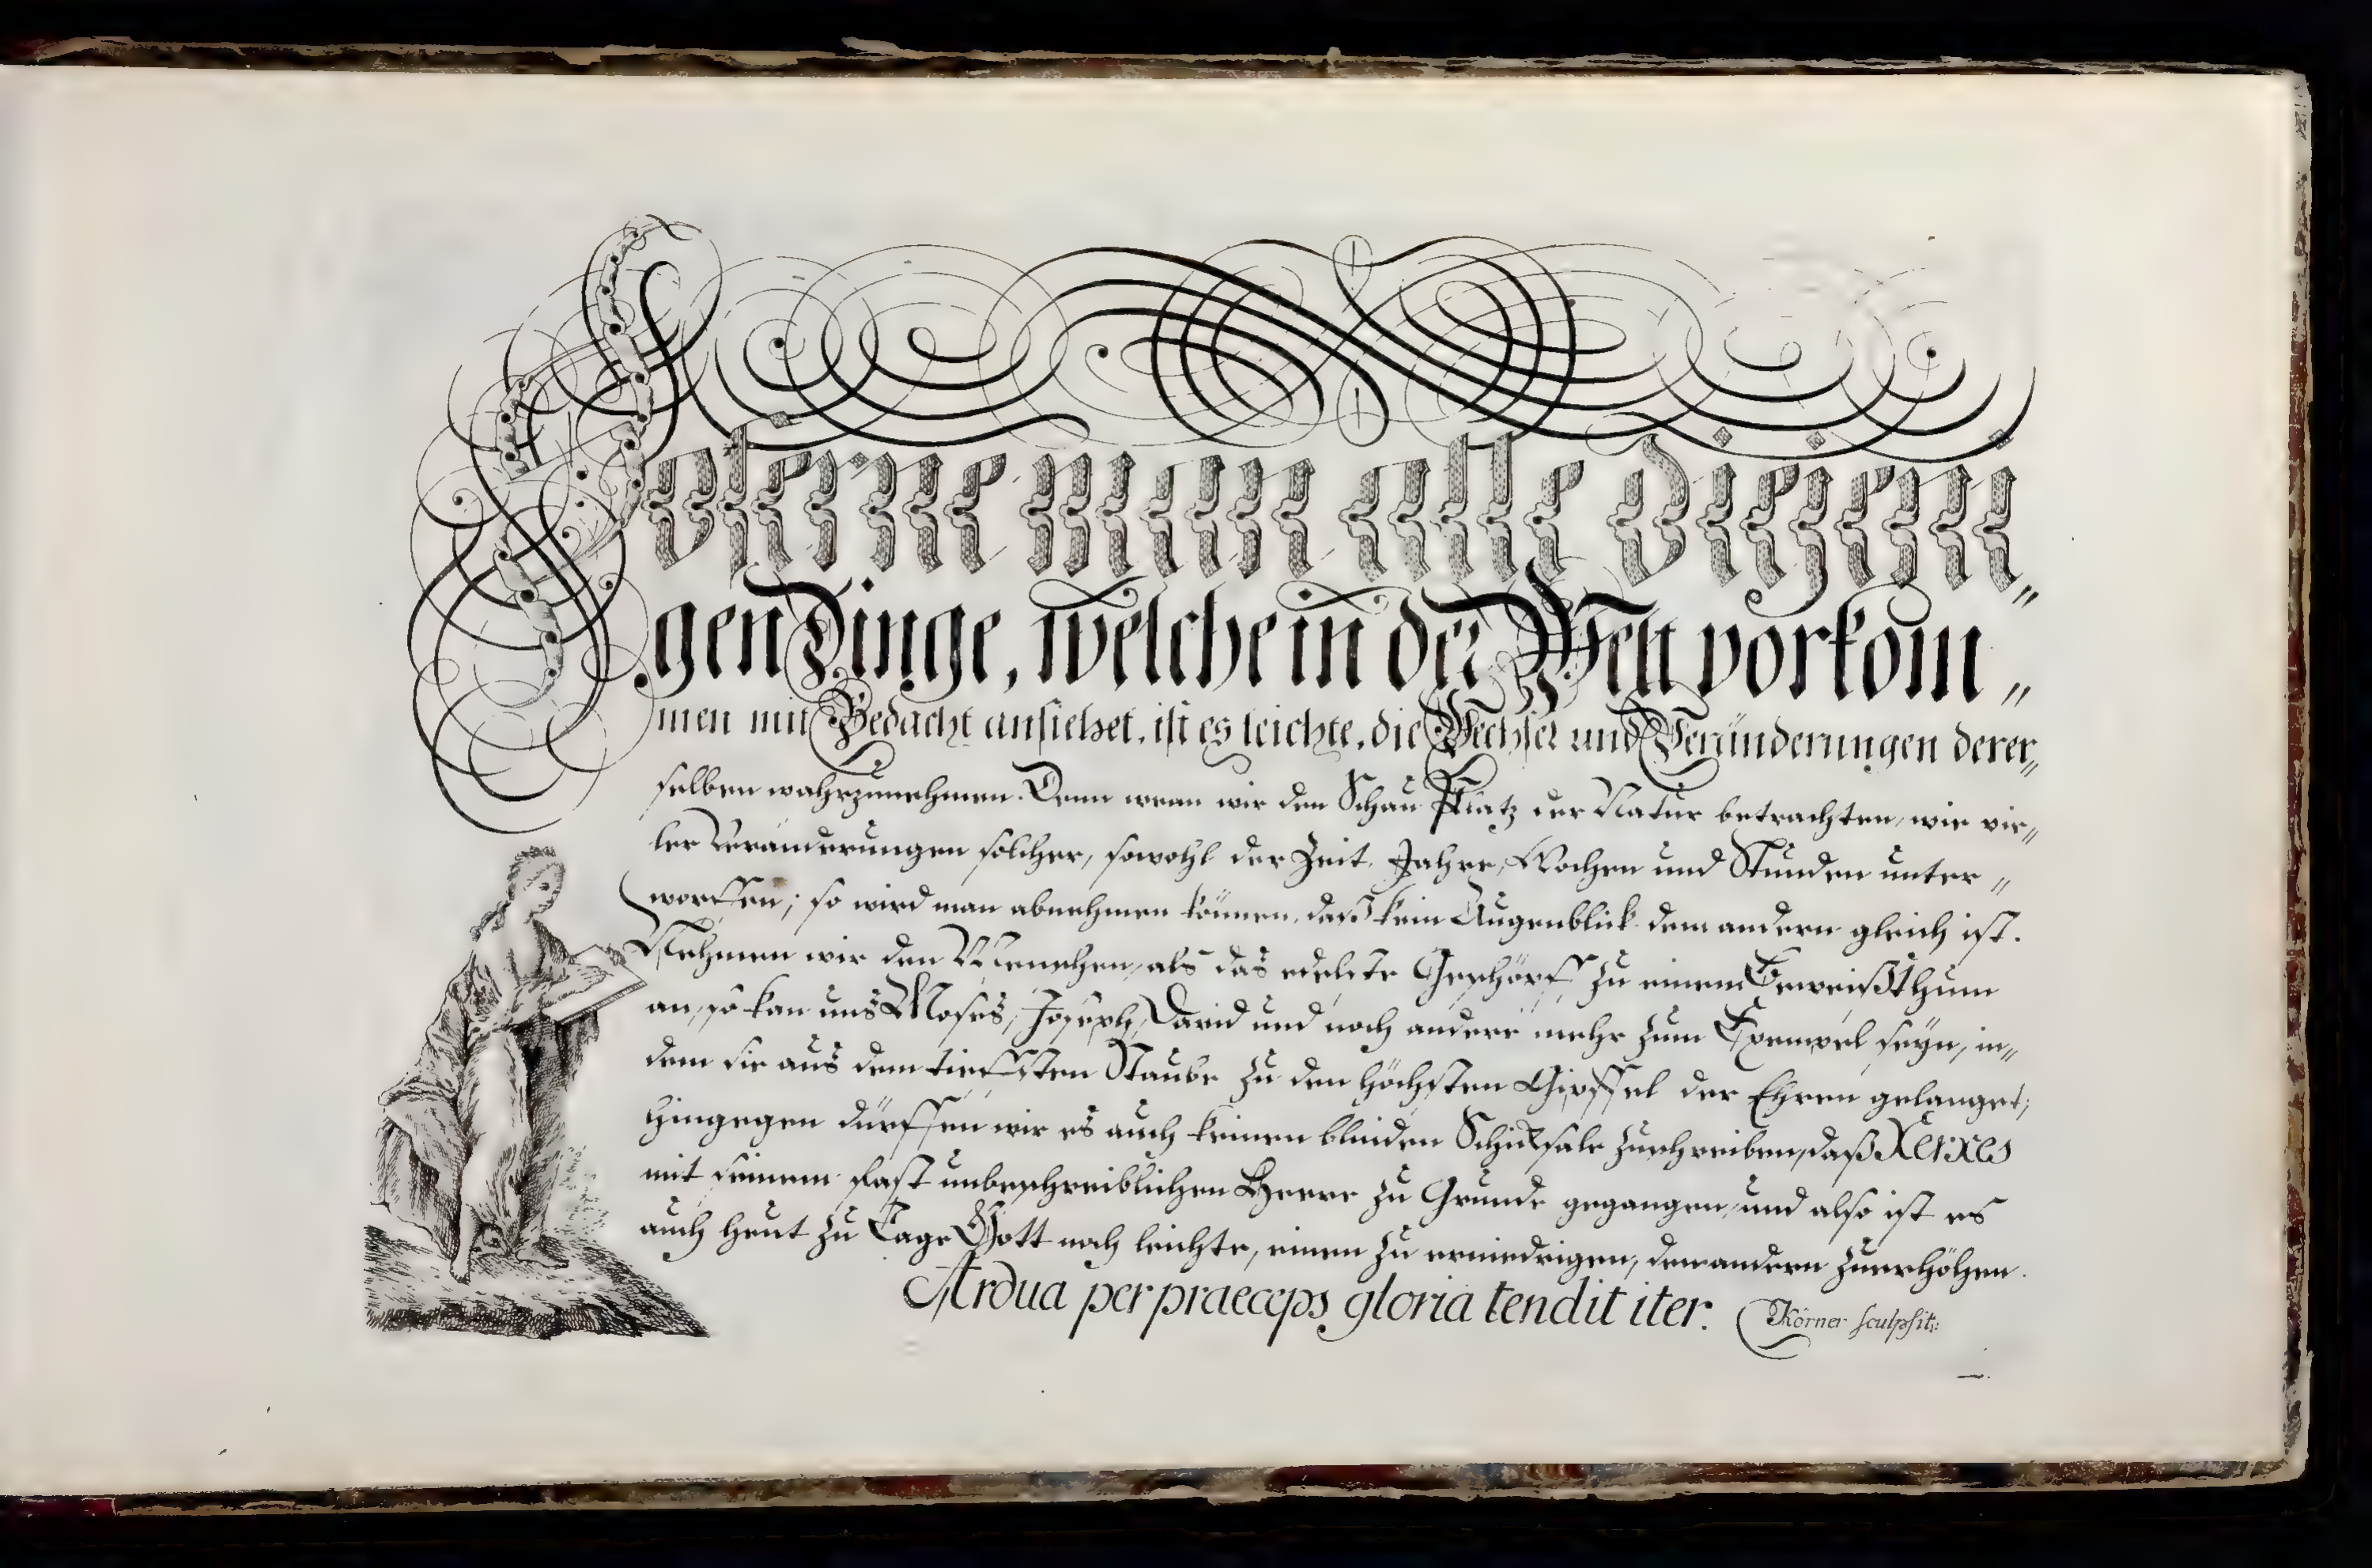 Soferne man alle diejeni„
gen Dinge, welche in der Welt vorkom̄„
men mit Bedacht ansiehet, ist es leichte, die Wechsel und Veründerungen derer„
selben wahrzunehmen. Denn wenn wir den Schau Platz der Natur betrachten, wie vie„
ler Veränderungen solcher, sowohl der Zeit, Jahre, Wochen und Stunden unter„
worffen; so wird man abnehmen können, daß kein Augenblick dem andern gleich ist.
Nehmen wir den Menschen, als das edelste Geschöpff zu einem Beweißthum
an, so kan uns Moses, Joseph, David und noch andere mehr zum Exempel seyn, in„
dem sie aus dem tieffsten Staube zu den höchsten Gipffel der Ehren gelanget;
hingegen dürffen wir es auch keinen blinden Schicksale zuschreiben, daß Xerxes
mit seinem fast unbeschreiblichen Heere zu Grunde gegangen, und also ist es
auch heut zu Tage Gott noch leichte, einen zu erniedrigen, den andern zu erhöhen.
Ardua per praeceps gloria tendit iter. Körner sculpsit: